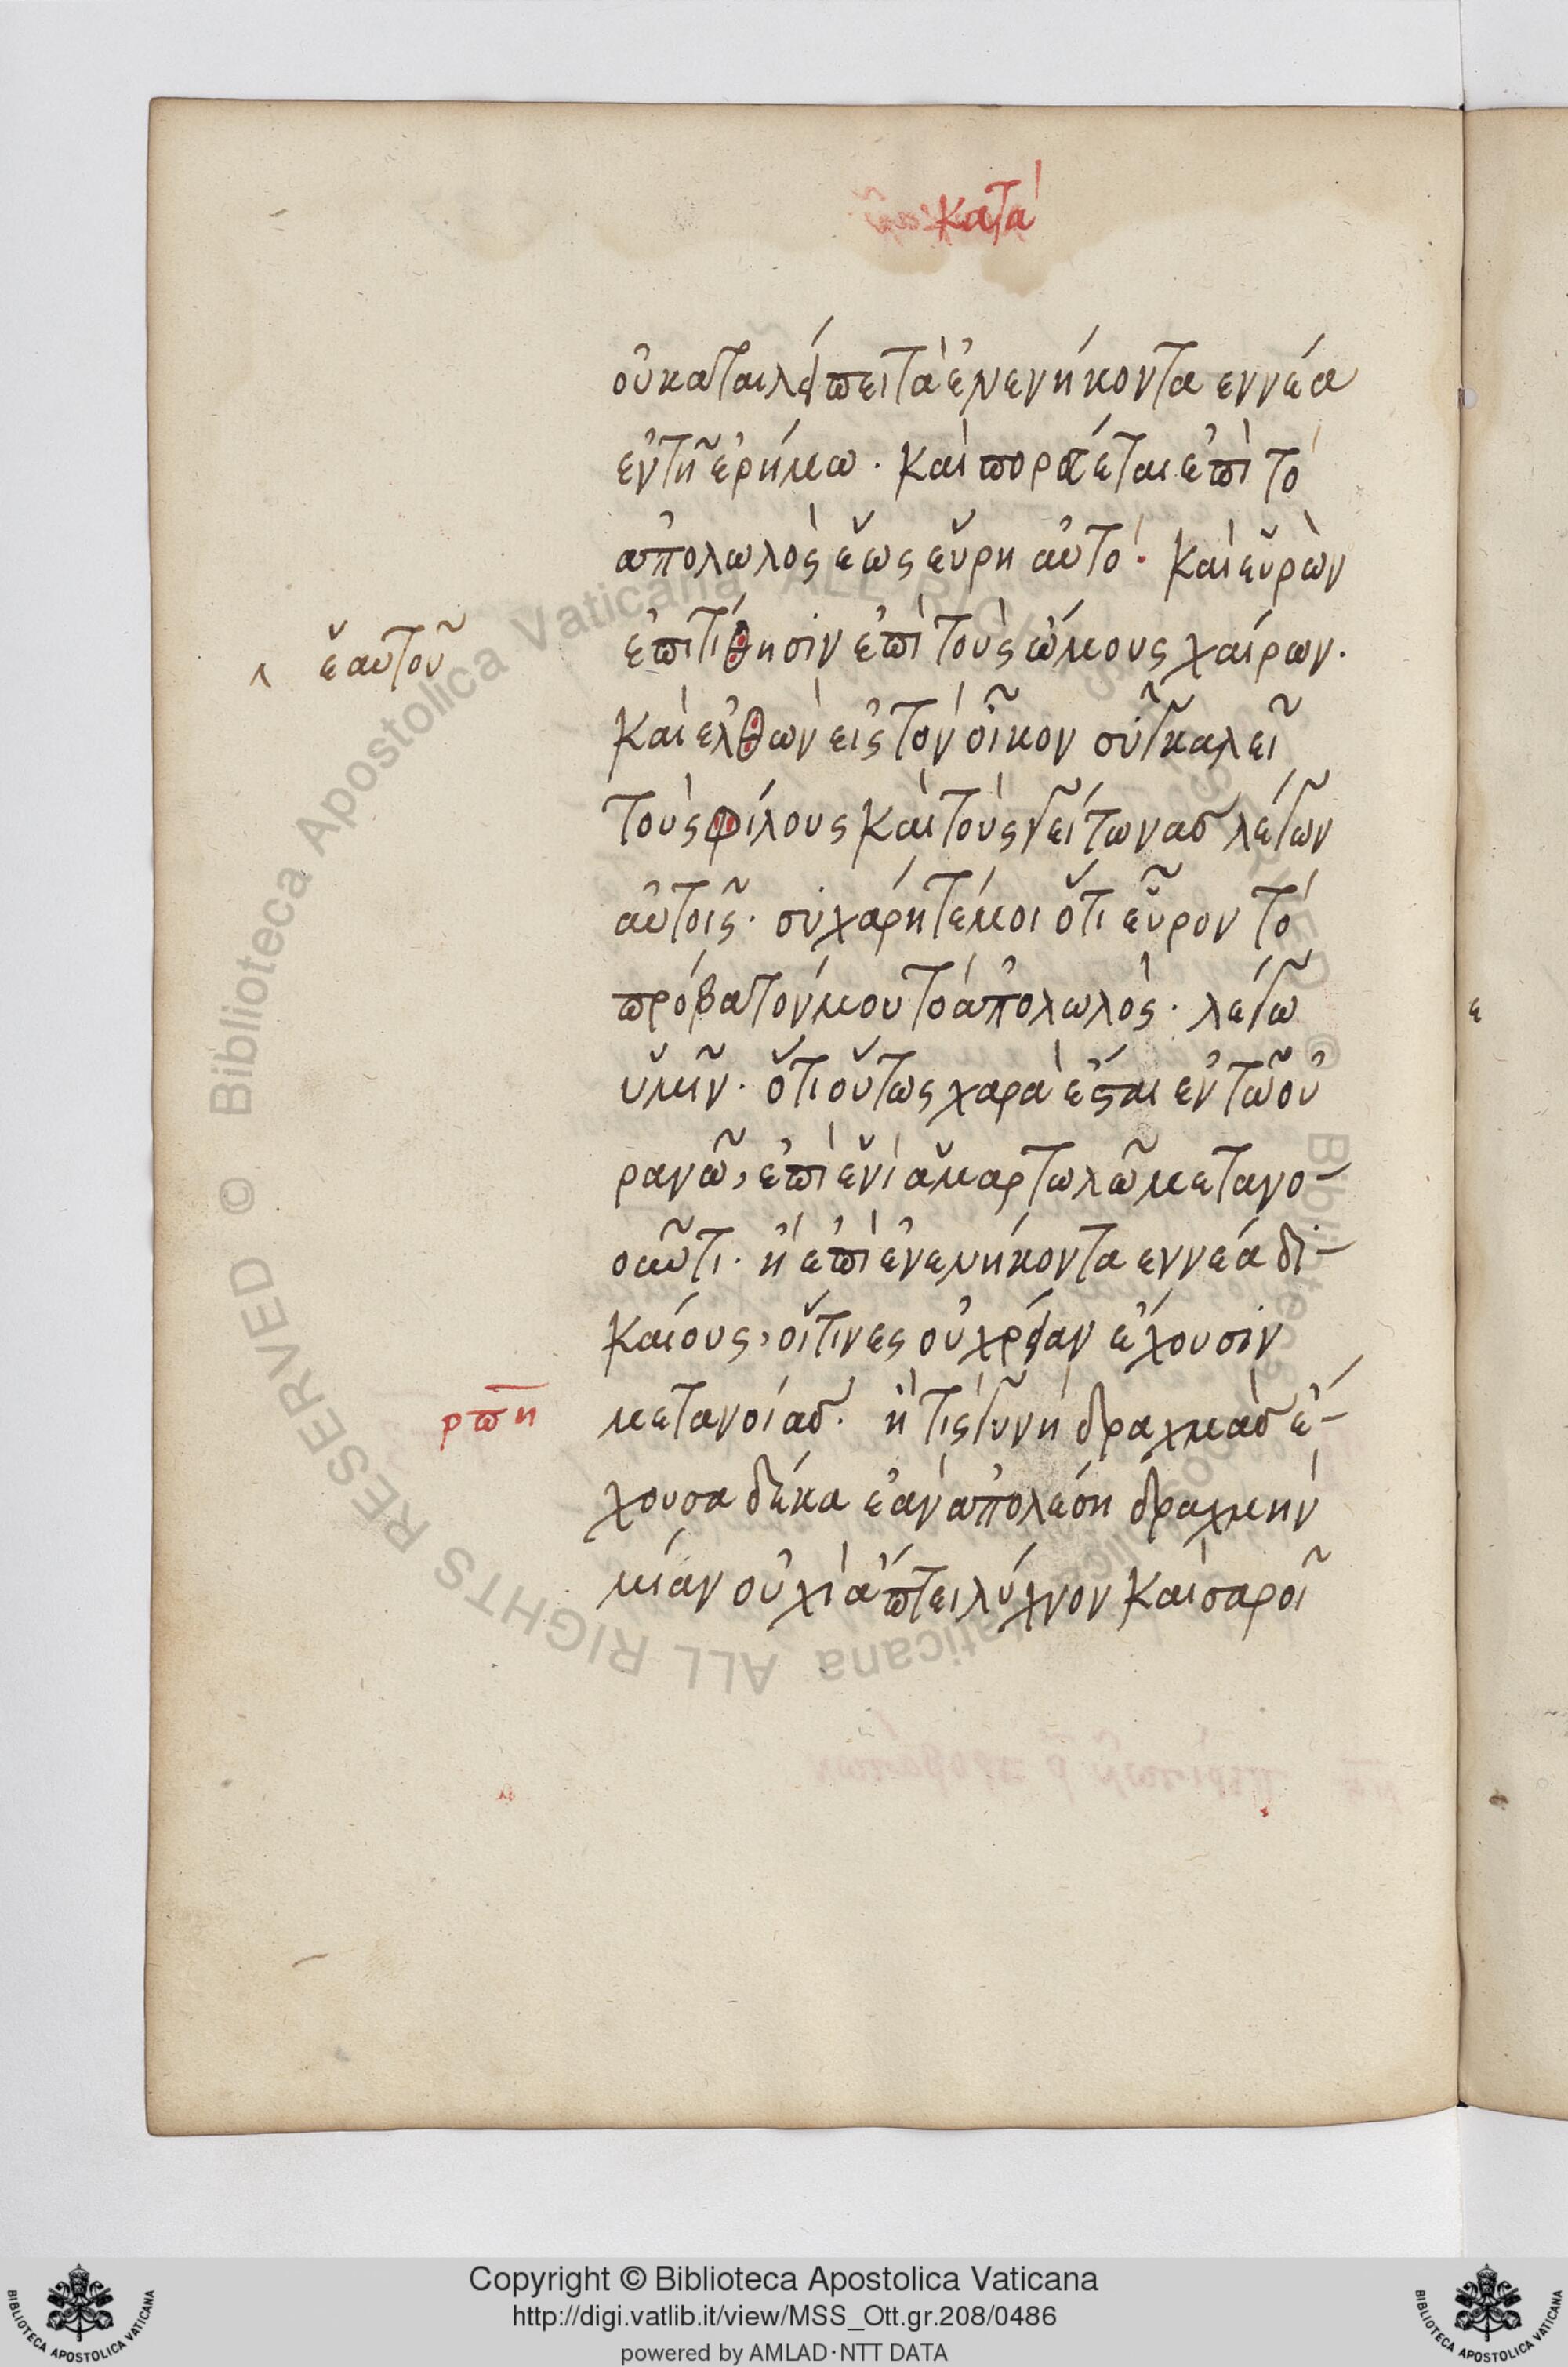 κατὰ
οὐ καταλείπει τὰ ἐνενήκοντα εννέα
ἐν τῆ ἐρήμω. καὶ πορεύεται ἐπὶ τὸ
ἀπολωλὸς ἕως εὕρη αὐτό. καὶ εὑρὼν
ἐπιτίθησιν ἐπὶ τοὺς ὤμους χαίρων.
^ ἑαυτοῦ
καὶ ελθὼν εἰς τὸν οἶκον συγκαλεῖ
τοὺς φίλους καὶ τοὺς γείτωνας λέγων
αὐτοῖς. συχάρητέ μοι ὅτι εὗρον τὸ
πρόβατόν μου τὸ ἀπολωλὸς. λέγω
ὑμῖν. ὅτι οὕτως χαρὰ ἔσται ἐν τῶ οὐ
ρανῶ, ἐπὶ ἑνὶ ἁμαρτωλῶ μετανο-
οῦντι. ἢ ἐπὶ ἐνενήκοντα εννέα δι-
καίους, οἵτινες οὐ χρείαν ἔχουσιν
μετανοίας. ἢ τίς γυνὴ δραχμὰς ἔ-
ρπη
χουσα δέκα ἐὰν ἀπολέση δραχμὴν
μίαν οὐχὶ ἅπτει λύχνον καὶ σαροῖ
© Biblioteca Apostolica Vaticana ALL RIGHTS RESERVED © Biblioteca Apostolica Vaticana ALL RIGHTS RESERVED
Copyright © Biblioteca Apostolica Vaticana
http://digi.vatlib.it/view/MSS_Ott.gr.208/0486
powered by AMLAD·NTT DATA
BIBLIOTECA APOSTOLICA VATICANA
BIBLIOTECA APOSTOLICA VATICANA